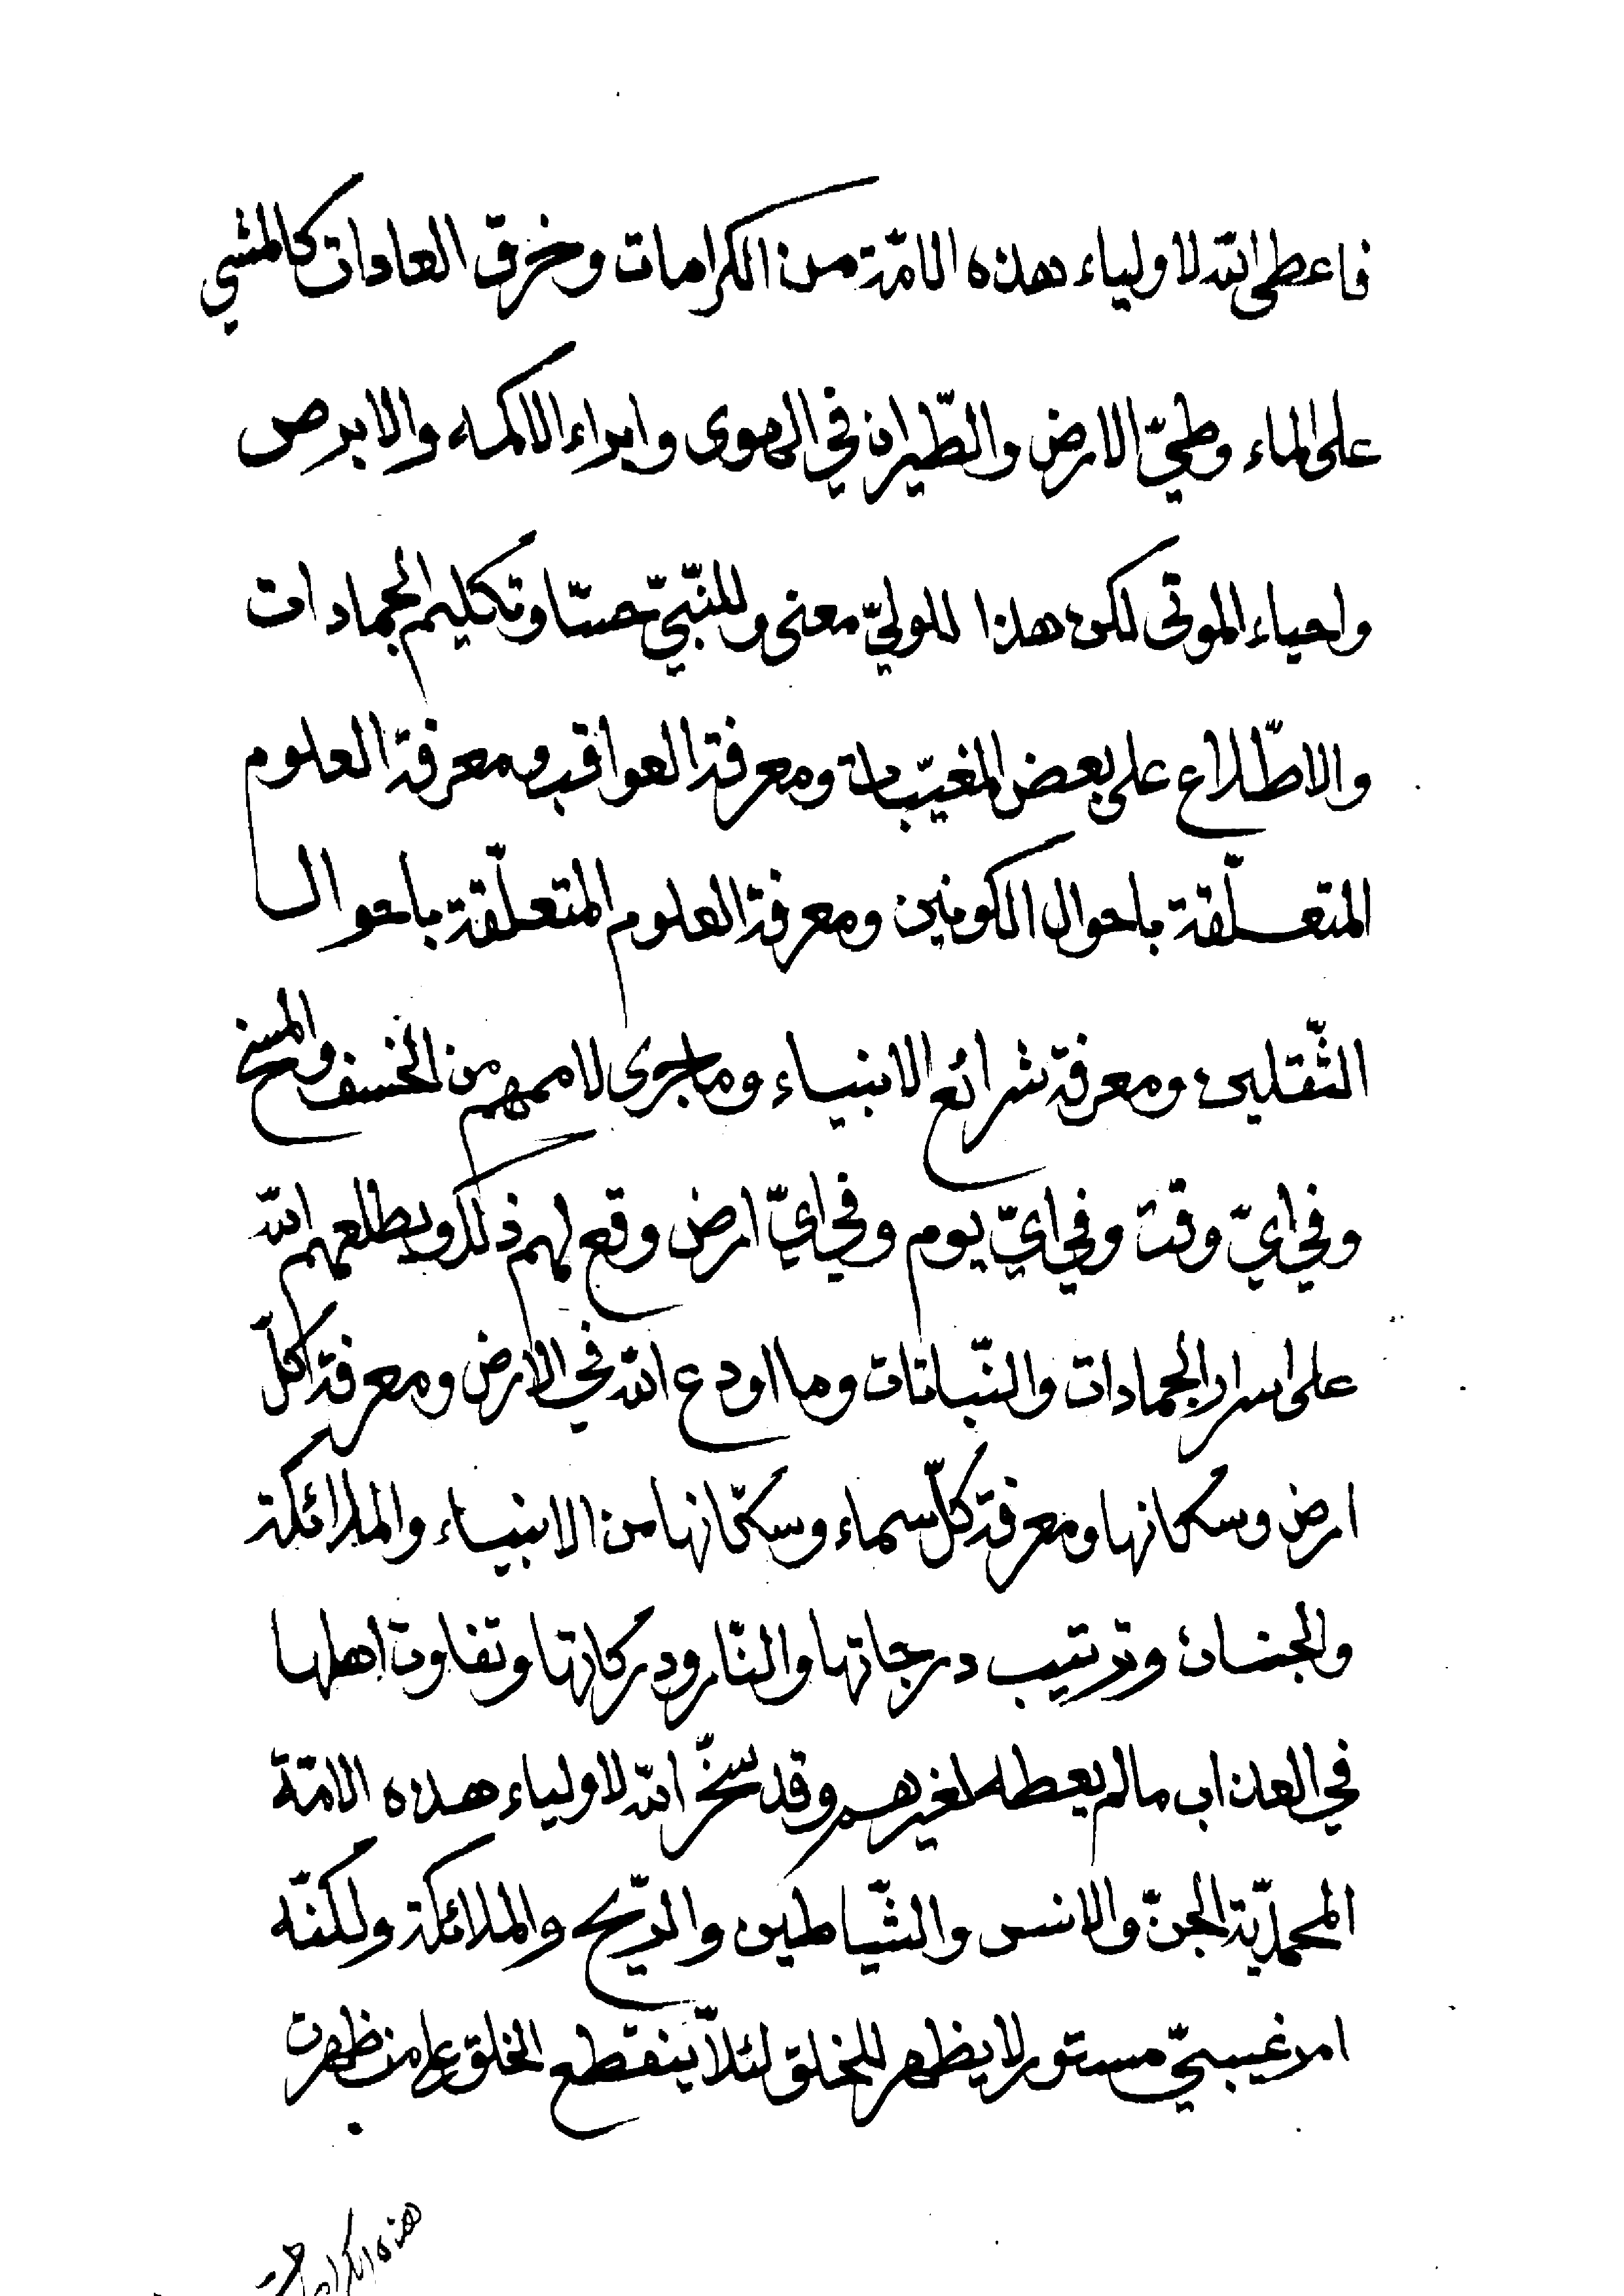 فاعطى الله لاولياء هذه الامّة من الكرامات وخرق العادات كالمشي
على الماء وطيّ الارض والطّيران في الهوى وابراء الاكمه والابرص
واحياء الموتى لكن هذا للوليّ معنى وللنّبيّ حسّا وتكليم الجمادات
والاطّلاع على بعض المغيّبات ومعرفة العواقب ومعرفة العلوم
المتعلّقة باحوال الكونين ومعرفة العلوم المتعلّقة باحوال
الثّقلين ومعرفة شرائع الانبياء وماجرى لاممهم من الخسف والمسخ
وفي ايّ وقت وفي ايّ يوم وفي ايّ ارض وقع لهم ذلك ويطلعهم الله
على اسرار الجمادات والنّباتات وما اودع الله في الارض ومعرفة كلّ
ارض وسكانها ومعرفة كلّ سماء وسكّانها من الانبياء والملائكة
والجنان وترتيب درجاتها والنّار ودركاتها وتفاوت اهلها
في العذاب مالم يعطه لغيرهم وقد سخّر الله لاولياء هذه الامّة
المحمّديّة الجنّ والانس والشّياطين والرّيح والملائكة ولكنّه
امر غيبيّ مستور لا يظهر للخلق لئلاّ ينقطع الخلق على من ظهرت
هذه الكرامات